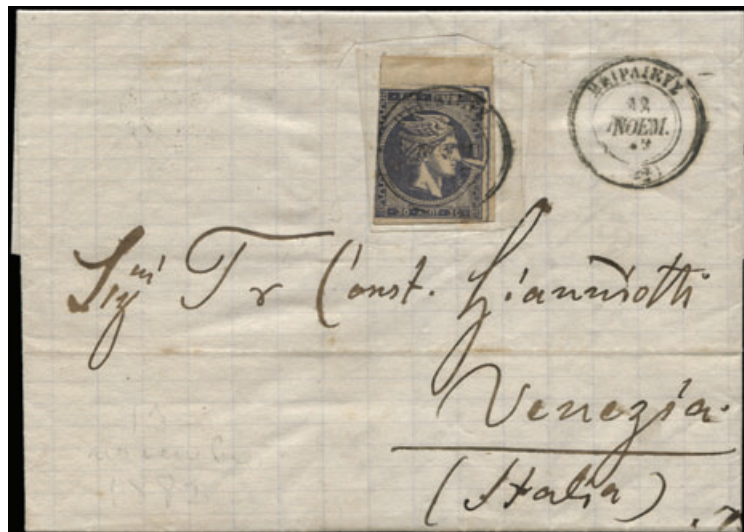 ΠΕΙΡΑΙΕΥΣ
ΝΟΕΜ.
Sig.ri Fr Const. Gianniotti
Venezia
(Italia)